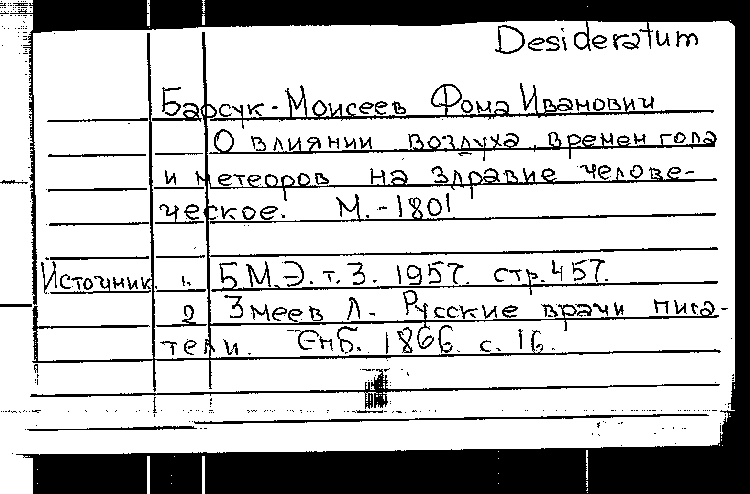 Desideratum
Барсук-Моисеев Фома Иванович
О влиянии воздуха, времен года
и метеоров на здравие челове-
ческое. М.-1801
Источник. 1. БМЭ. т. 3. 1957. стр. 457.
2 Змеев Л. Русские врачи писа-
тели. Спб. 1866. с. 16.